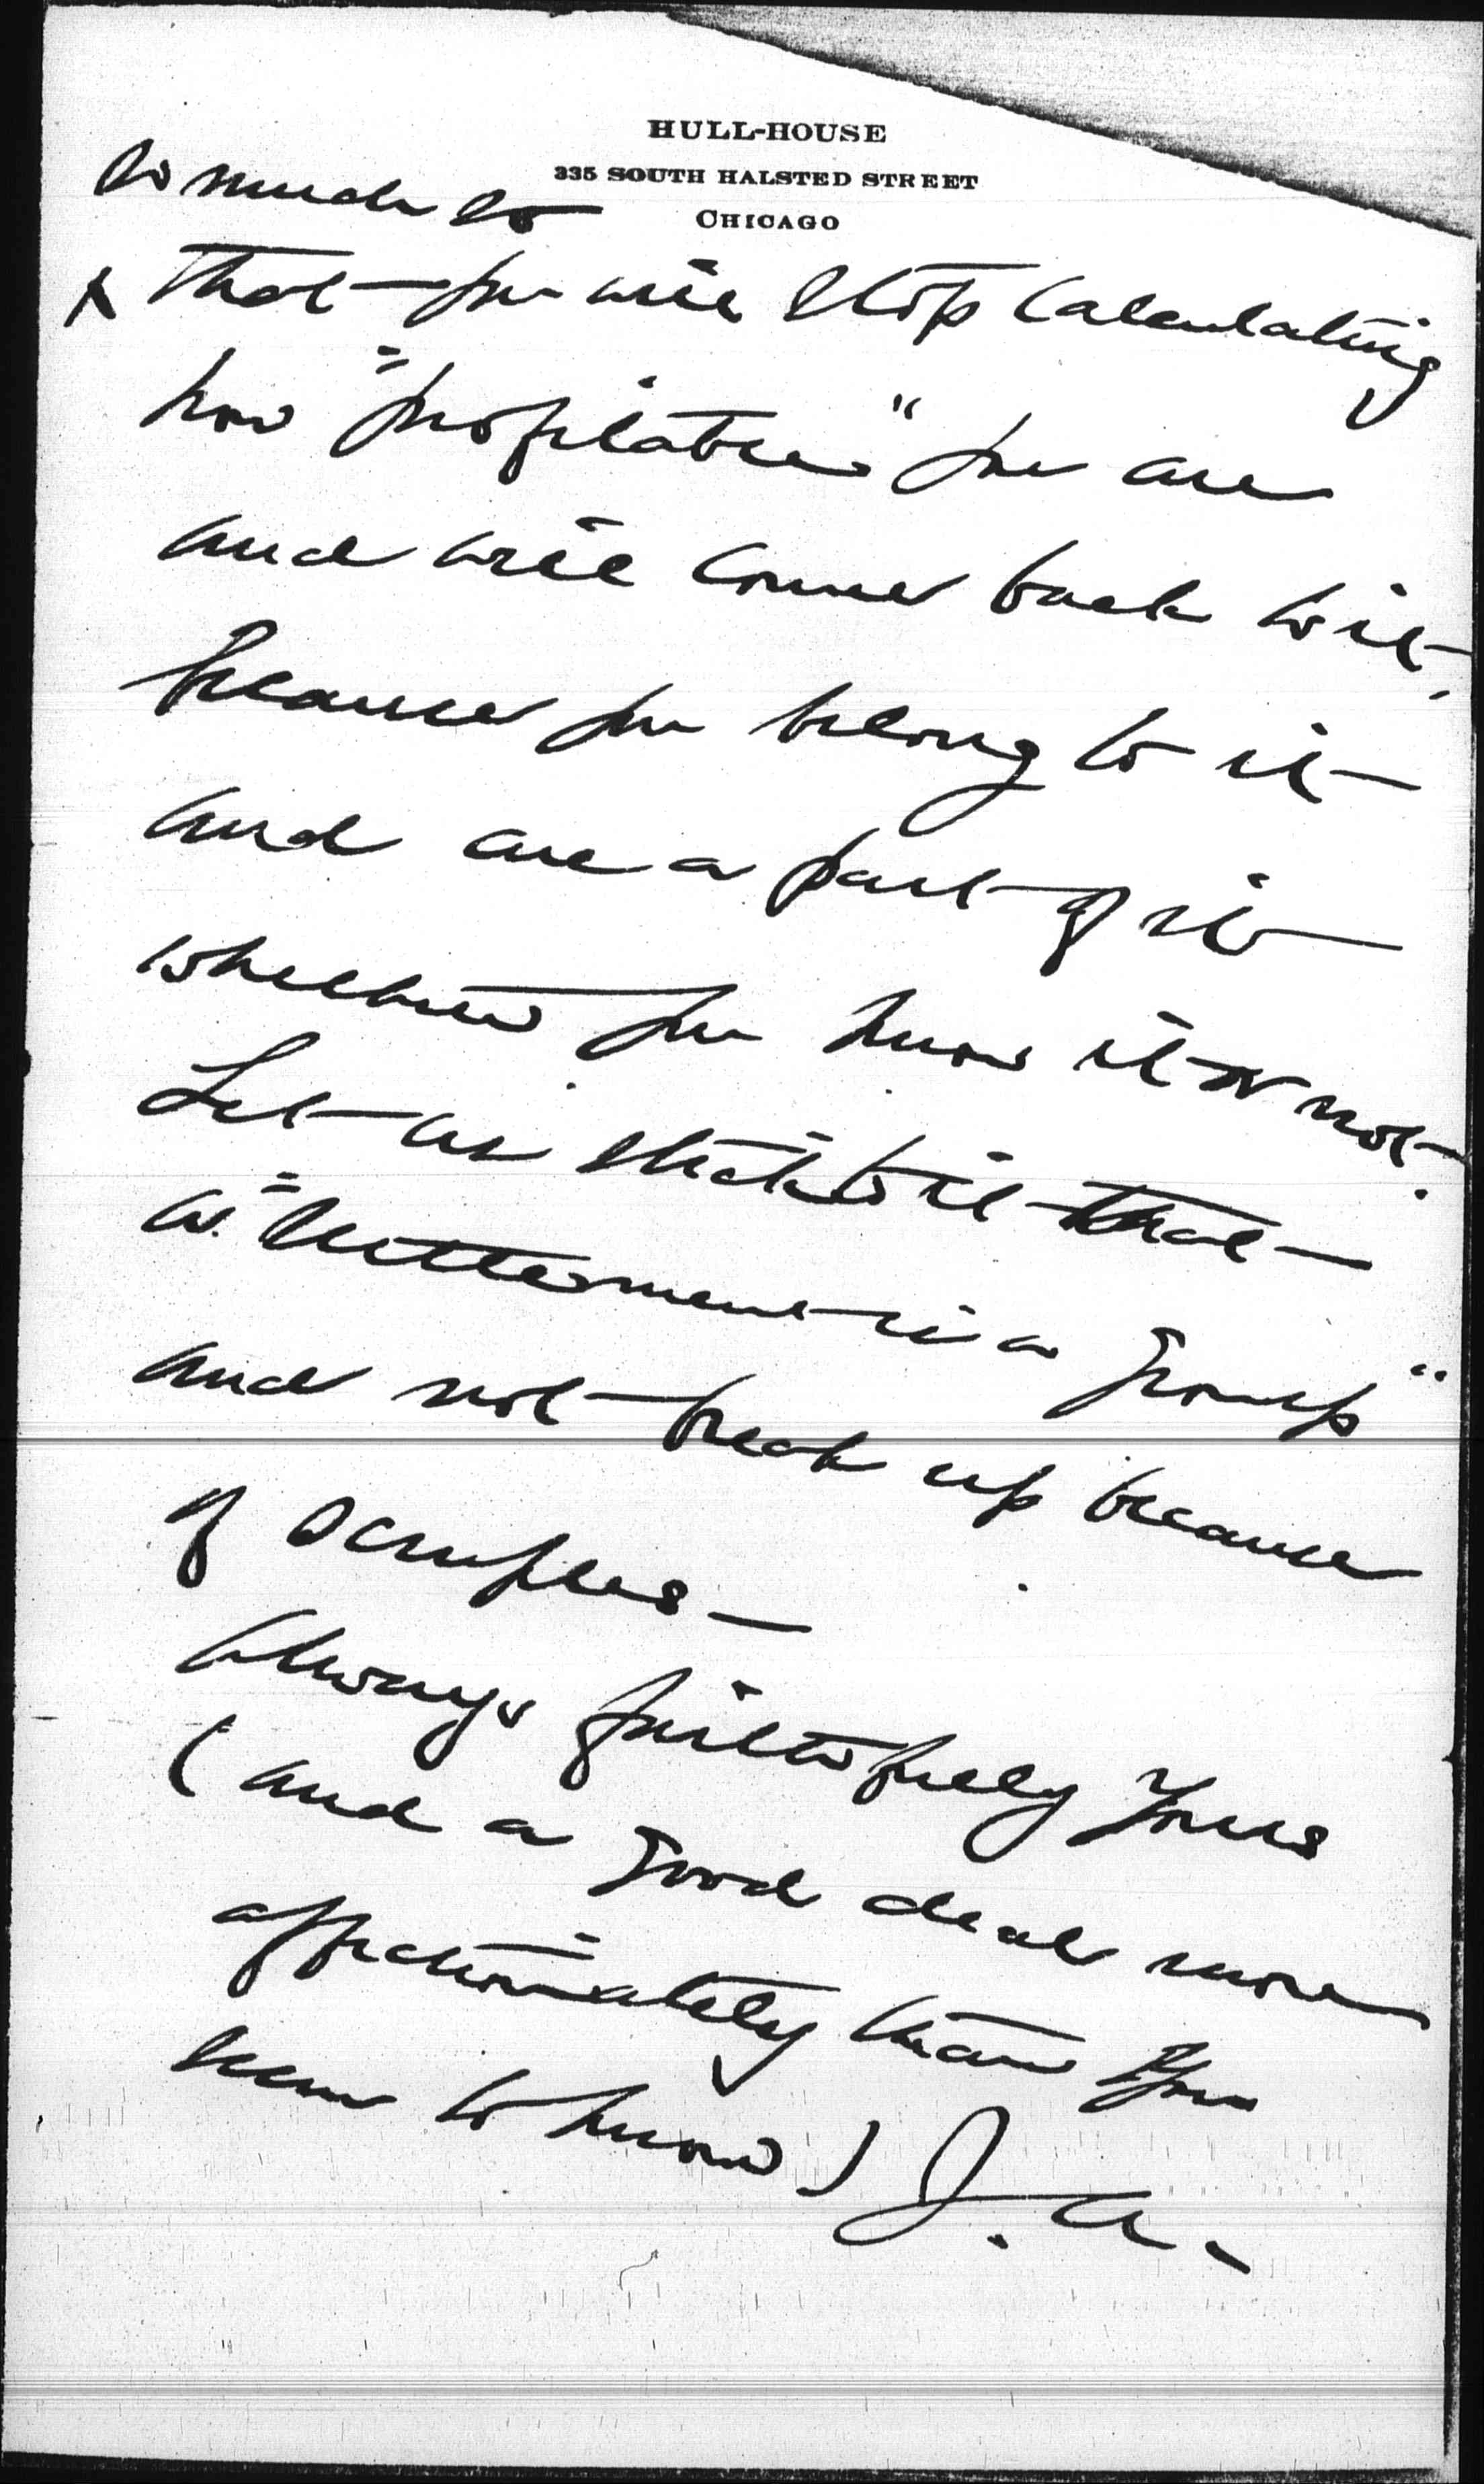 HULL-HOUSE
335 SOUTH HALSTED STREET
CHICAGO
so much so
^ that you will stop calculating
how "profitable" you are
and will come back to it,
because you belong to it
and are a part of it
whether you know it or not.
Let us stick to it that
a "settlement is a group"
and not break up because
of scruples —
Always faithfully yours
(and a good deal more
affectionately than you
seem to know) J. A.